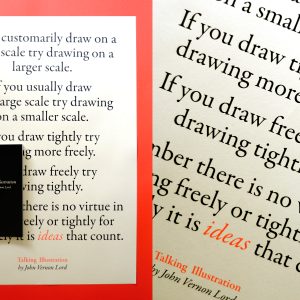 customarily draw on a
scale try drawing on a
larger scale.
f you usually draw
large scale try drawing
on a smaller scale.
you draw tightly try
drawing more freely.
draw freely try
drawing tightly.
there is no virtue in
freely or tightly for
it is ideas that count.
Talking Illustration
by John Vernon Lord
on a smaller
If you draw ti
drawing more
If you draw free
drawing tight
mber there is no v
ing freely or tightly
y it is ideas that
Talking Illustration
by John Vernon Lord